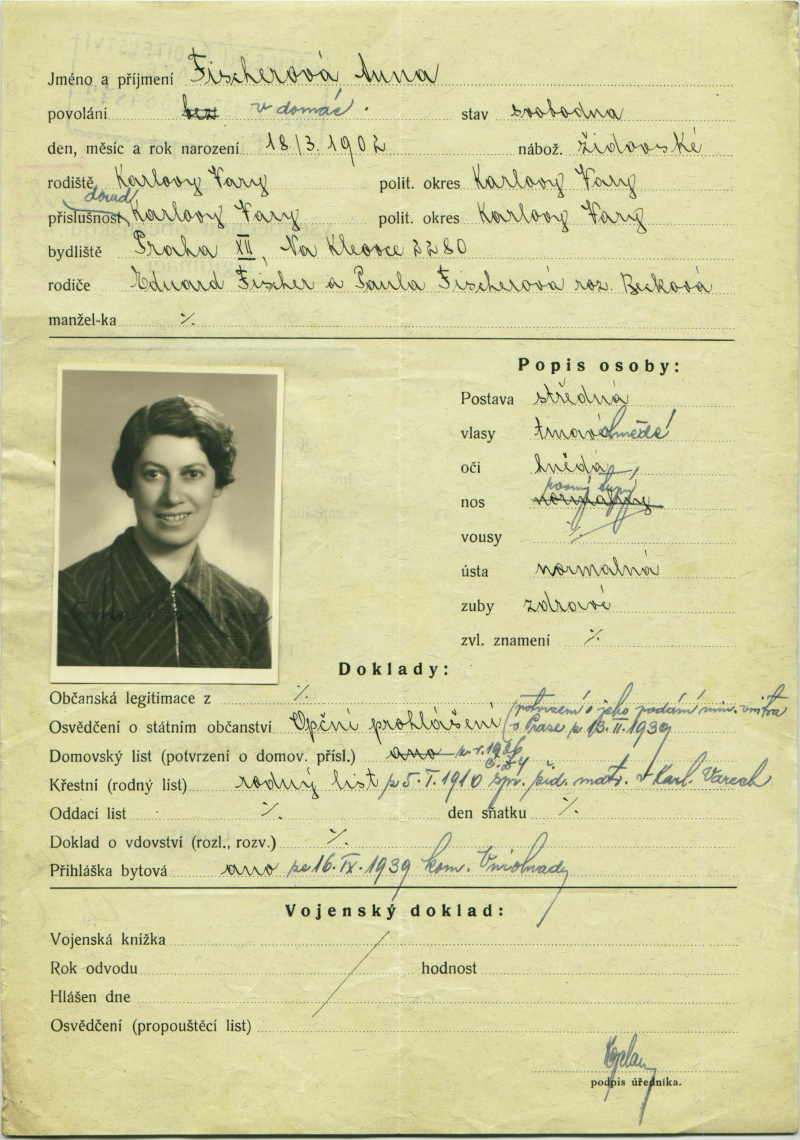 Jméno a příjmení Fischerová Anna
povolání bez v domác. stav svobodna
den, měsíc a rok narození 18/3. 1902 nábož. židovské
rodiště Karlovy Vary polit. okres Karlovy Vary
dosud
příslušnost Karlovy Vary polit. okres Karlovy Vary
bydliště Praha XII, Na Klevvce 2280
rodiče Eduard Fischer a Paula Fischerová roz. Becková
manžel-ka %
Popis osoby:
Postava středná
vlasy tmavo hnědé
oči hnědá
nos normálný
vousy %
ústa normalná
zuby zdravé
zvl. znamení %
Doklady:
Občanská legitimace z %
Osvědčení o státním občanství Opční prohlášení (potvrzení o jeho podání min. vnitra
v Praze z 13. II. 1939
Domovský list (potvrzení o domov. přísl.) ano z r. 1926
Křestní (rodný list) rodný list z 5. I. 1910 žid. matr. v Karl. Varech
Oddací list % den sňatku %
Doklad o vdovství (rozl., rozv.) %
Přihláška bytová ano ze 16. IX. 1939 kom. Vinohrady
Vojenský doklad:
Vojenská knížka
Rok odvodu hodnost
Hlášen dne
Osvědčení (propouštěcí list)
podpis úředníka.